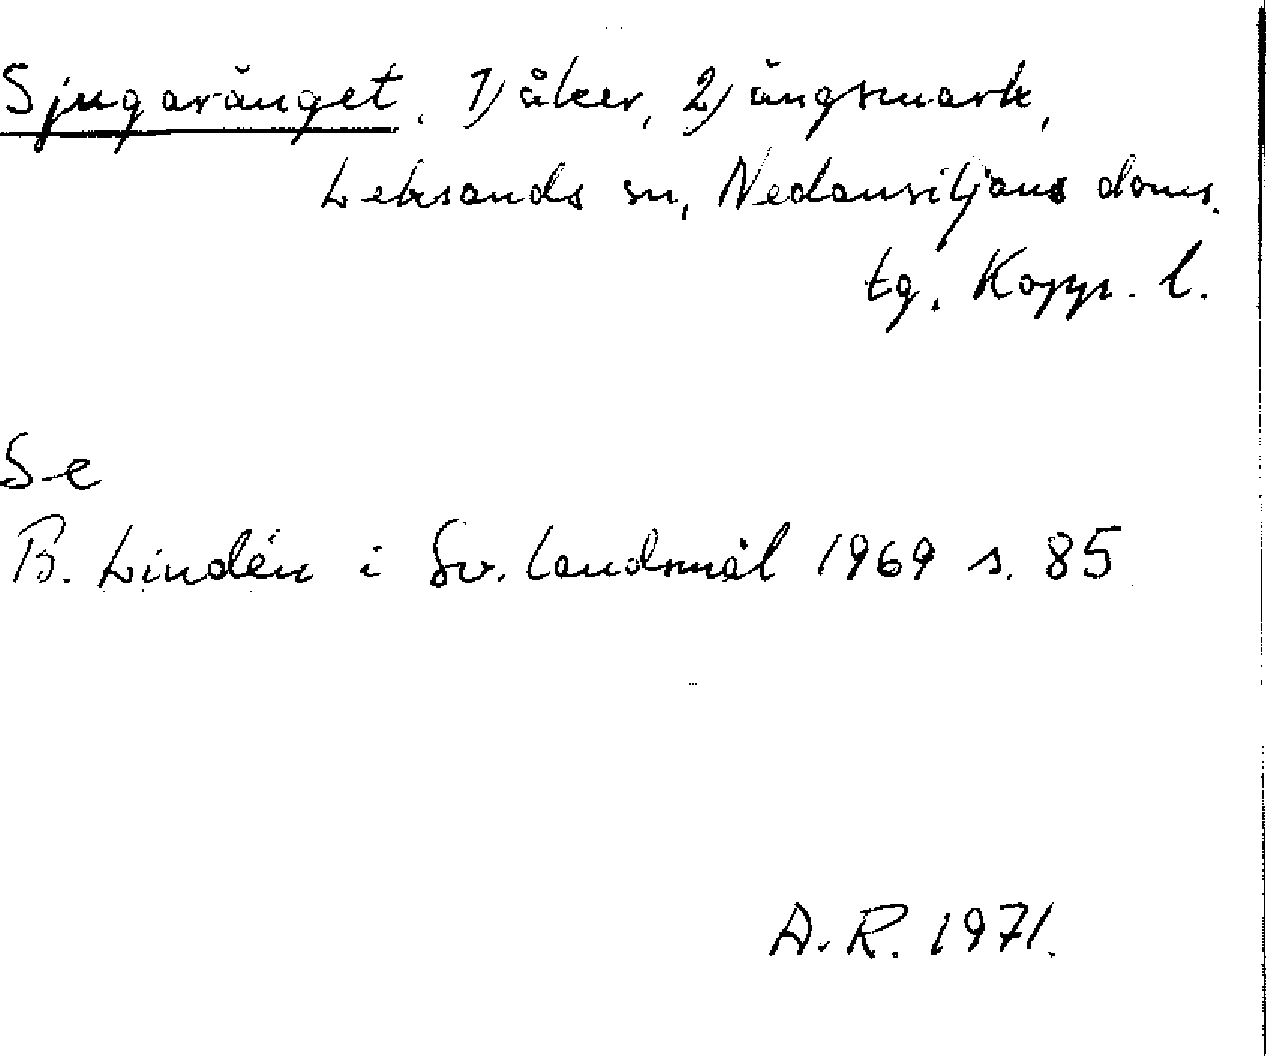 Sjugaränget, 1) åker, 2) ängsmark,
Leksands sn, Nedansiljans doms.
tg. Kopp. l.
Se
B. Lindén i Sv. landsmål 1969 s. 85
A. R. 1971.